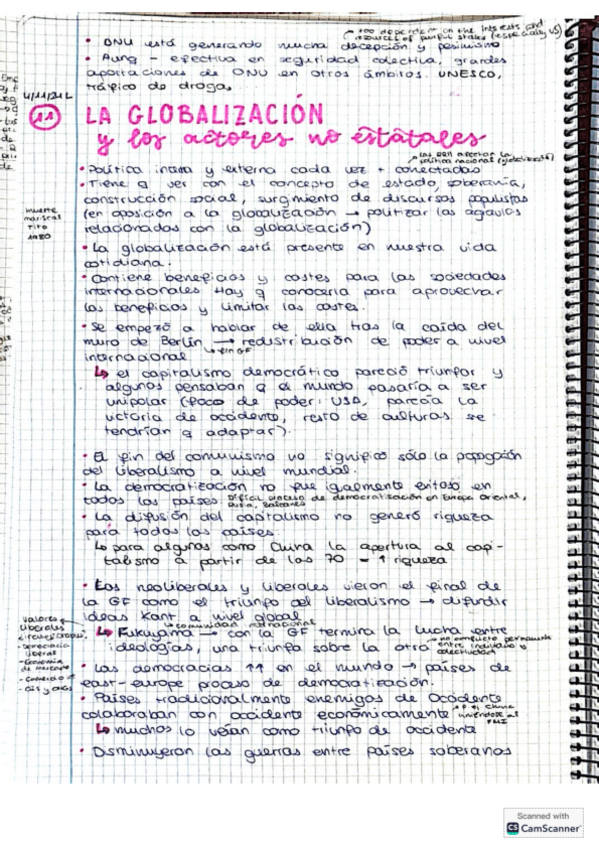 too dependent on the interests and
resources of powerful states (especially US)
• ONU está generando mucha decepción y pesimismo
• Aunq – efectiva en seguridad colectiva, grandes
aportaciones de ONU en otros ámbitos. UNESCO,
tráfico de droga.
4/11/21
11 LA GLOBALIZACIÓN
y los actores no estatales
las RRII afectan la
política nacional
• Política interna y externa cada vez + conectadas
• Tiene q ver con el concepto de estado, soberanía,
construcción social, surgimiento de discursos populistas
(en oposición a la globalización → politizar los agravios
relacionados con la globalización)
muerte
mariscal
Tito
1980
• La globalización está presente en nuestra vida
cotidiana.
• Contiene beneficios y costes para las sociedades
internacionales Hay q conocerla para aprovechar
los beneficios y limitar los costes.
• Se empezó a hablar de ella tras la caída del
muro de Berlín → redistribución de poder a nivel
internacional
↳ fin GF
↳ el capitalismo democrático pareció triunfar y
algunos pensaban q el mundo pasaría a ser
unipolar (foco de poder: USA, parecía la
victoria de occidente, resto de culturas se
tendrían q adaptar).
• El fin del comunismo no significó sólo la propagación
del liberalismo a nivel mundial.
• La democratización no fue igualmente exitosa en
todos los países. Difícil proceso de democratización en Europa Oriental,
Rusia, Balcanes
• La difusión del capitalismo no generó riqueza
para todos los países
↳ para algunos como China la apertura al capi-
talismo a partir de los 70 – ↑ riqueza
• Los neoliberales y liberales vieron el final de
la GF como el triunfo del liberalismo → difundir
ideas Kant a nivel global
↳ comunidad internacional
valores
liberales
- Democracia
liberal
- Economía
de mercado
- Comercio
- OIs y ONGs
↳ Fukuyama → con la GF termina la lucha entre
ideologías, una triunfa sobre la otra
→ no conflicto permanente
entre individuo y
colectividad
• Las democracias ↑↑ en el mundo → países de
east-europe proceso de democratización.
• Países tradicionalmente enemigos de Occidente
colaboraban con occidente económicamente
P. ej. China
uniéndose al
FMI
↳ muchos lo veían como triunfo de occidente
• Disminuyeron las guerras entre países soberanos
Scanned with
CS CamScanner